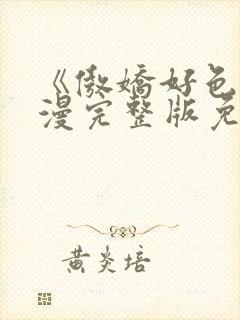 《傲娇好色
漫完整版免
黄炎培